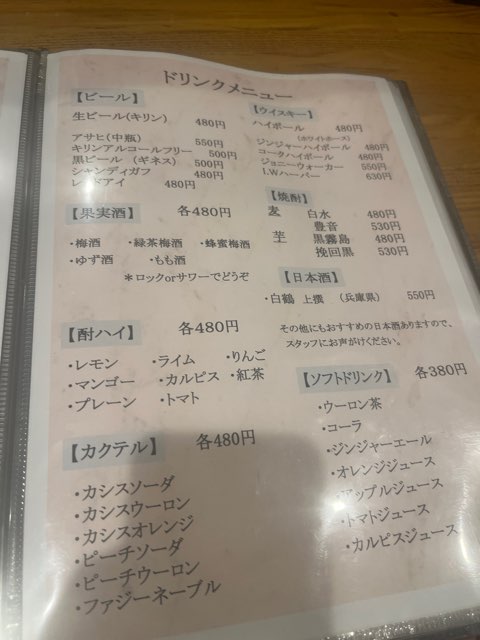 ドリンクメニュー
【ビール】
生ビール(キリン) 480円
アサヒ(中瓶) 550円
キリンアルコールフリー 500円
黒ビール (ギネス) 500円
シャンディガフ 480円
レッドアイ 480円
【果実酒】 各480円
・梅酒 ・緑茶梅酒 ・蜂蜜梅酒
・ゆず酒 ・もも酒
*ロックorサワーでどうぞ
【酎ハイ】 各480円
・レモン ・ライム ・りんご
・マンゴー ・カルピス ・紅茶
・プレーン ・トマト
【カクテル】 各480円
・カシスソーダ
・カシスウーロン
・カシスオレンジ
・ピーチソーダ
・ピーチウーロン
・ファジーネーブル
【ウイスキー】
ハイボール 480円
(ホワイトホース)
ジンジャーハイボール 480円
コークハイボール 480円
ジョニーウォーカー 550円
I.Wハーパー 630円
【焼酎】
麦 白水 480円
豊音 530円
芋 黒霧島 480円
挽回黒 530円
【日本酒】
・白鶴 上撰 (兵庫県) 550円
その他にもおすすめの日本酒ありますので、
スタッフにお声がけください。
【ソフトドリンク】 各380円
・ウーロン茶
・コーラ
・ジンジャーエール
・オレンジジュース
・アップルジュース
・トマトジュース
・カルピスジュース